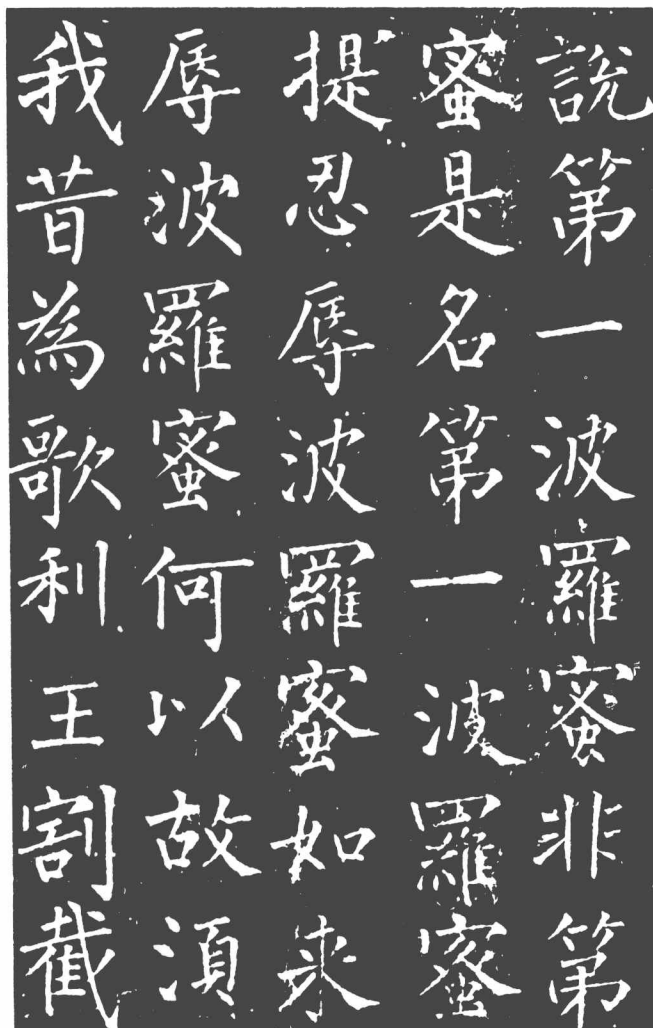 說第一波羅蜜非第
蜜是名第一波羅蜜
提忍辱波羅蜜如來
辱波羅蜜何以故須
我昔為歌利王割截